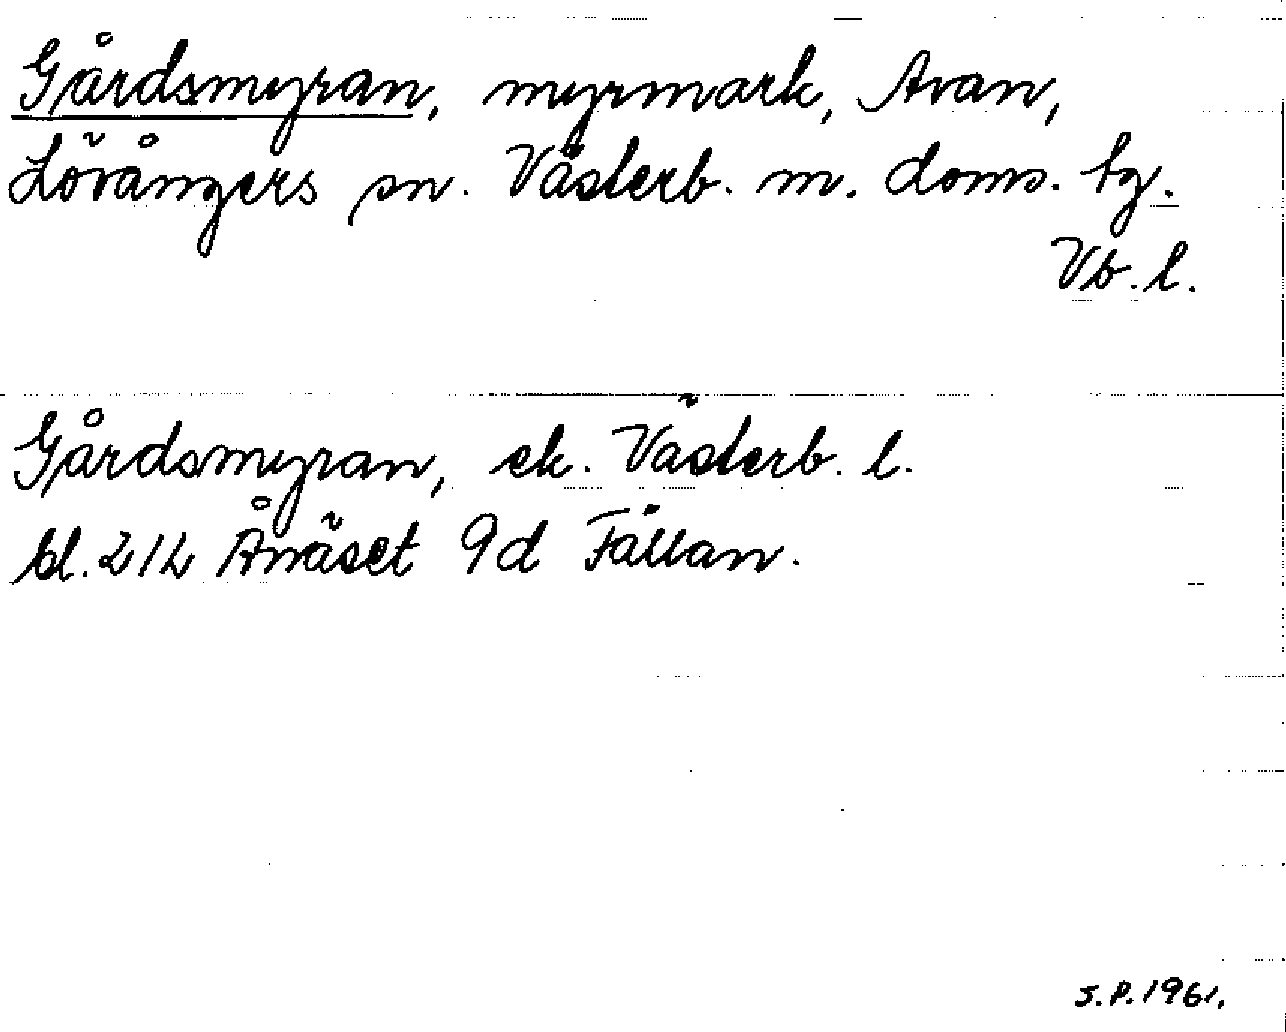 Gårdsmyran, myrmark, Avan,
Lövångers sn. Västerb. m. doms. tg.
Vb. l.
Gårdsmyran, ek. Västerb. l.
bl. 212 Ånäset 9d Fällan.
S.P. 1961.